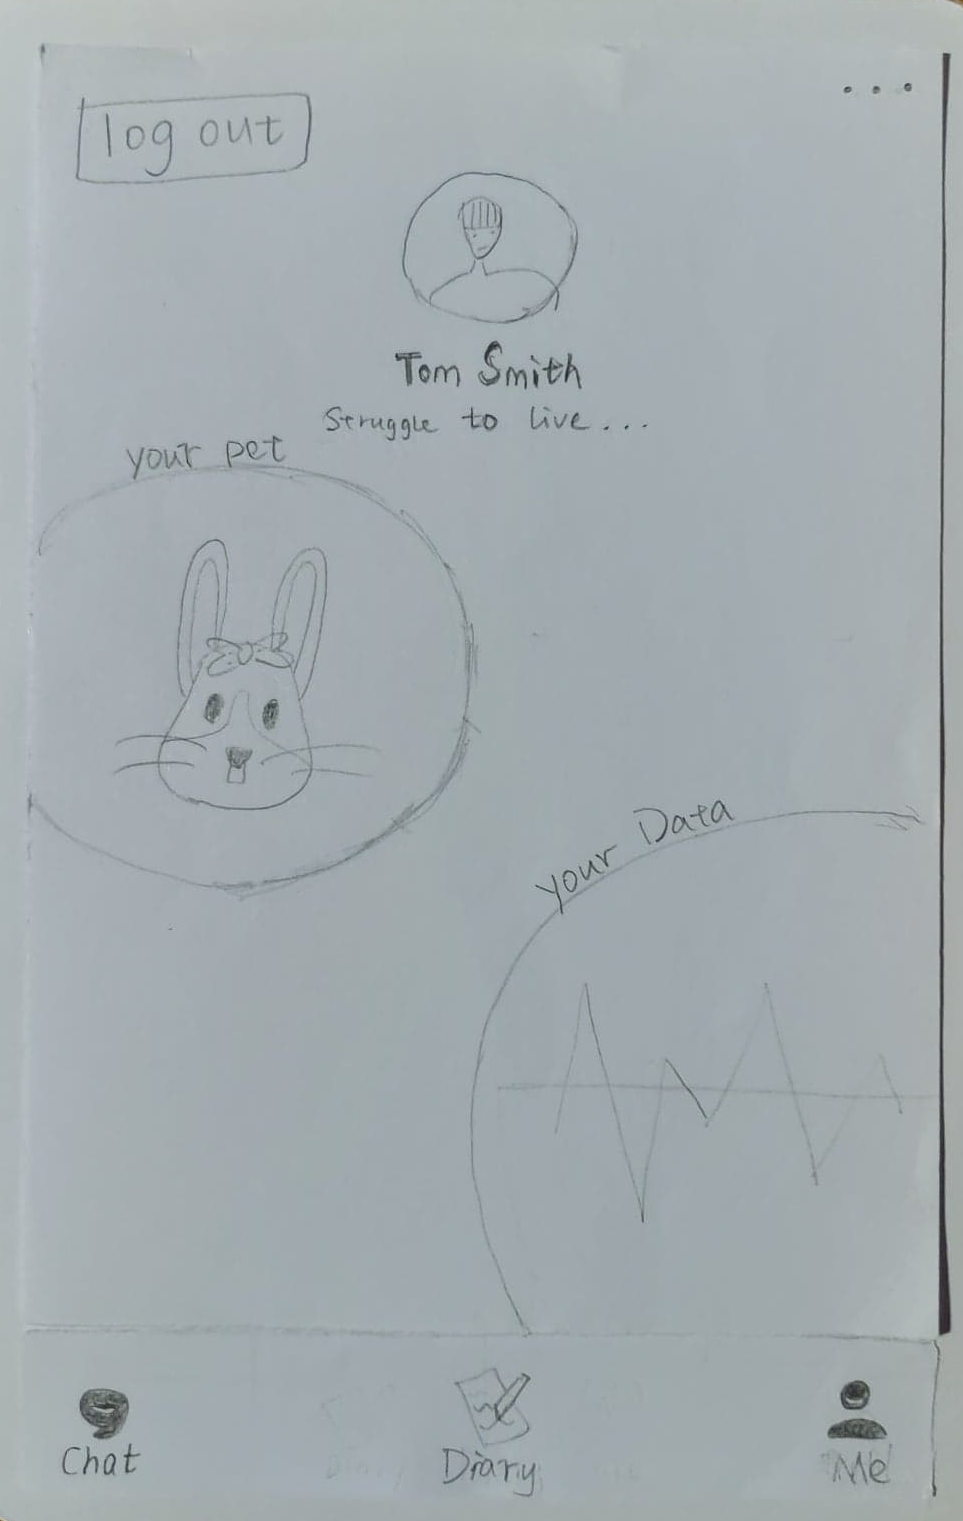 log out
...
Tom Smith
Struggle to live...
your pet
your Data
Chat
Diary
Me